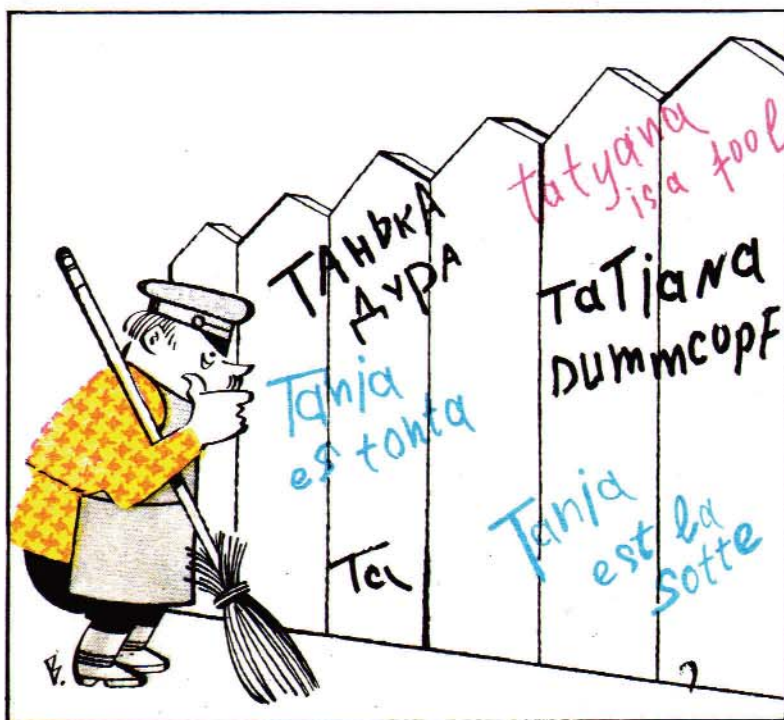 ТАНЬКА
ДУРА
tatyana
is a fool
TaTjaNa
DUMMCOPF
Tanja
es tonta
Tanja
est la
sotte
Ta
В.